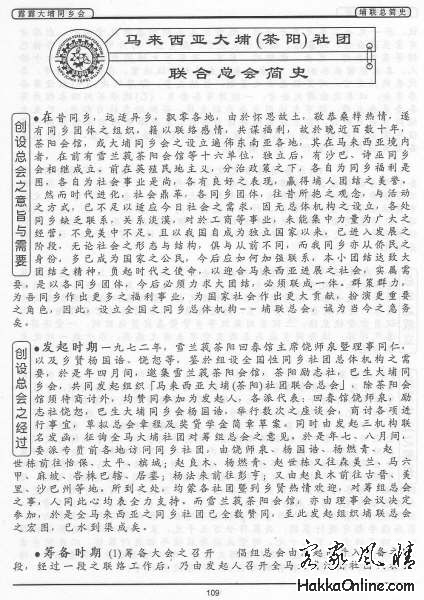 霹雳大埔同乡会
埔联总简史
马来西亚大埔(茶阳)社团
联合总会简史
创设总会之意旨与需要
●在昔同乡，远适异乡，飘零各地，由於怀思故土，敬恭桑梓热情，遂
有同乡团体之组织，藉以联络感情，共谋福利，故於晚近百数十年，
茶阳会馆，或大埔同乡会之设立遍佈东南亚各地，其在马来西亚境内
者，在前有雪兰莪茶阳会馆等十六单位，独立后，有沙巴、诗巫同乡
会相继成立。前在英殖民地主义，分治政策之下，各自为同乡福利是
图，各自为社会事业是尚，各有良好之表现，赢得埔人团结之美誉。
然而时代进化，社会鼎革，各同乡团体，往昔所抱之观念，与活动
之方式，已不足以适应今日社会之需求，因无总体机构之设立，各处
同乡缺乏联系，关系浅漠，对於工商等事业，未能集中力量为广大之
经营，不免美中不足，且以我国自成为独立国家以来，已进入发展之
阶段，无论社会之形态与结构，俱与从前不同，而我同乡亦从侨民之
身份，多已成为国家之公民，今后应如何加强联系，本小团结达致大
团结之精神，负起时代之使命，以迎合马来西亚进展之社会，实属需
要，是以各同乡团体，今后必须力求大团结，必须联成一体。群策群力，
为吾同乡作出更多之福利事业，为国家社会作出更大贡献，扮演更重要
之角色，因此，设立全国之同乡总机构--埔联总会，诚为当今之急务
矣。
创设总会之经过
●发起时期 一九七二年，雪兰莪茶阳回春馆主席饶师泉暨理事同仁，
以及乡贤杨国语、饶恕等，鉴於组设全国性同乡社团总体机构之需
要，於是年四月间，邀集雪兰莪茶阳会馆，茶阳励志社，巴生大埔同
乡会，共同发起组织「马来西亚大埔(茶阳)社团联合总会」，除茶阳会
馆须待商讨外，均赞同参加为发起人，各派代表：回春馆饶师泉，励
志社饶恕，巴生大埔同乡会杨国语，举行数次之座谈会，商讨各项进
行事宜，草拟总会章程及奖贷学金简章草案。同时由发起三机构联
名发函，征询全马大埔社团对筹组总会之意见，於是年七、八月间，
委派专员前各地访问同乡社团，由饶师泉、杨国语、杨燃青、赵
世栋前往怡保、太平、槟城；赵良木、杨燃青、赵世栋又往森美兰、马六
甲、麻坡、峇株巴辖、居銮；杨法来前往彭亨；又由赵良木前往古晋、美
里、沙巴州等地，所到之处，均蒙各社团暨列乡贤热情欢迎，对筹组总会
之事，人同此心均表全力支持，而雪兰莪茶阳会馆，亦由理事会议决定
参加，於是全马来西亚之同乡社团已全数赞同，至此发起组织埔联总会
之宏图，已水到渠成矣。
●筹备时期 (1)筹备大会之召开 倡组总会由
段，经过一段之联络工作后，乃由发起人召开全马
109
客家风情
HakkaOnline.com